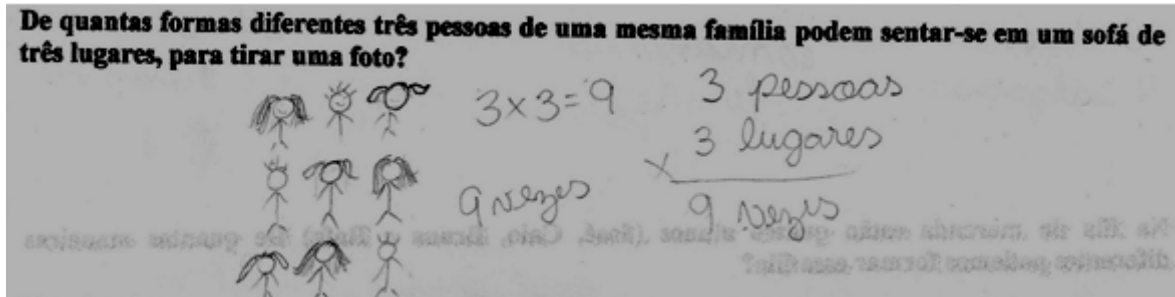 De quantas formas diferentes três pessoas de uma mesma família podem sentar-se em um sofá de
três lugares, para tirar uma foto?
3×3=9
3 pessoas
× 3 lugares
9 vezes
9 vezis